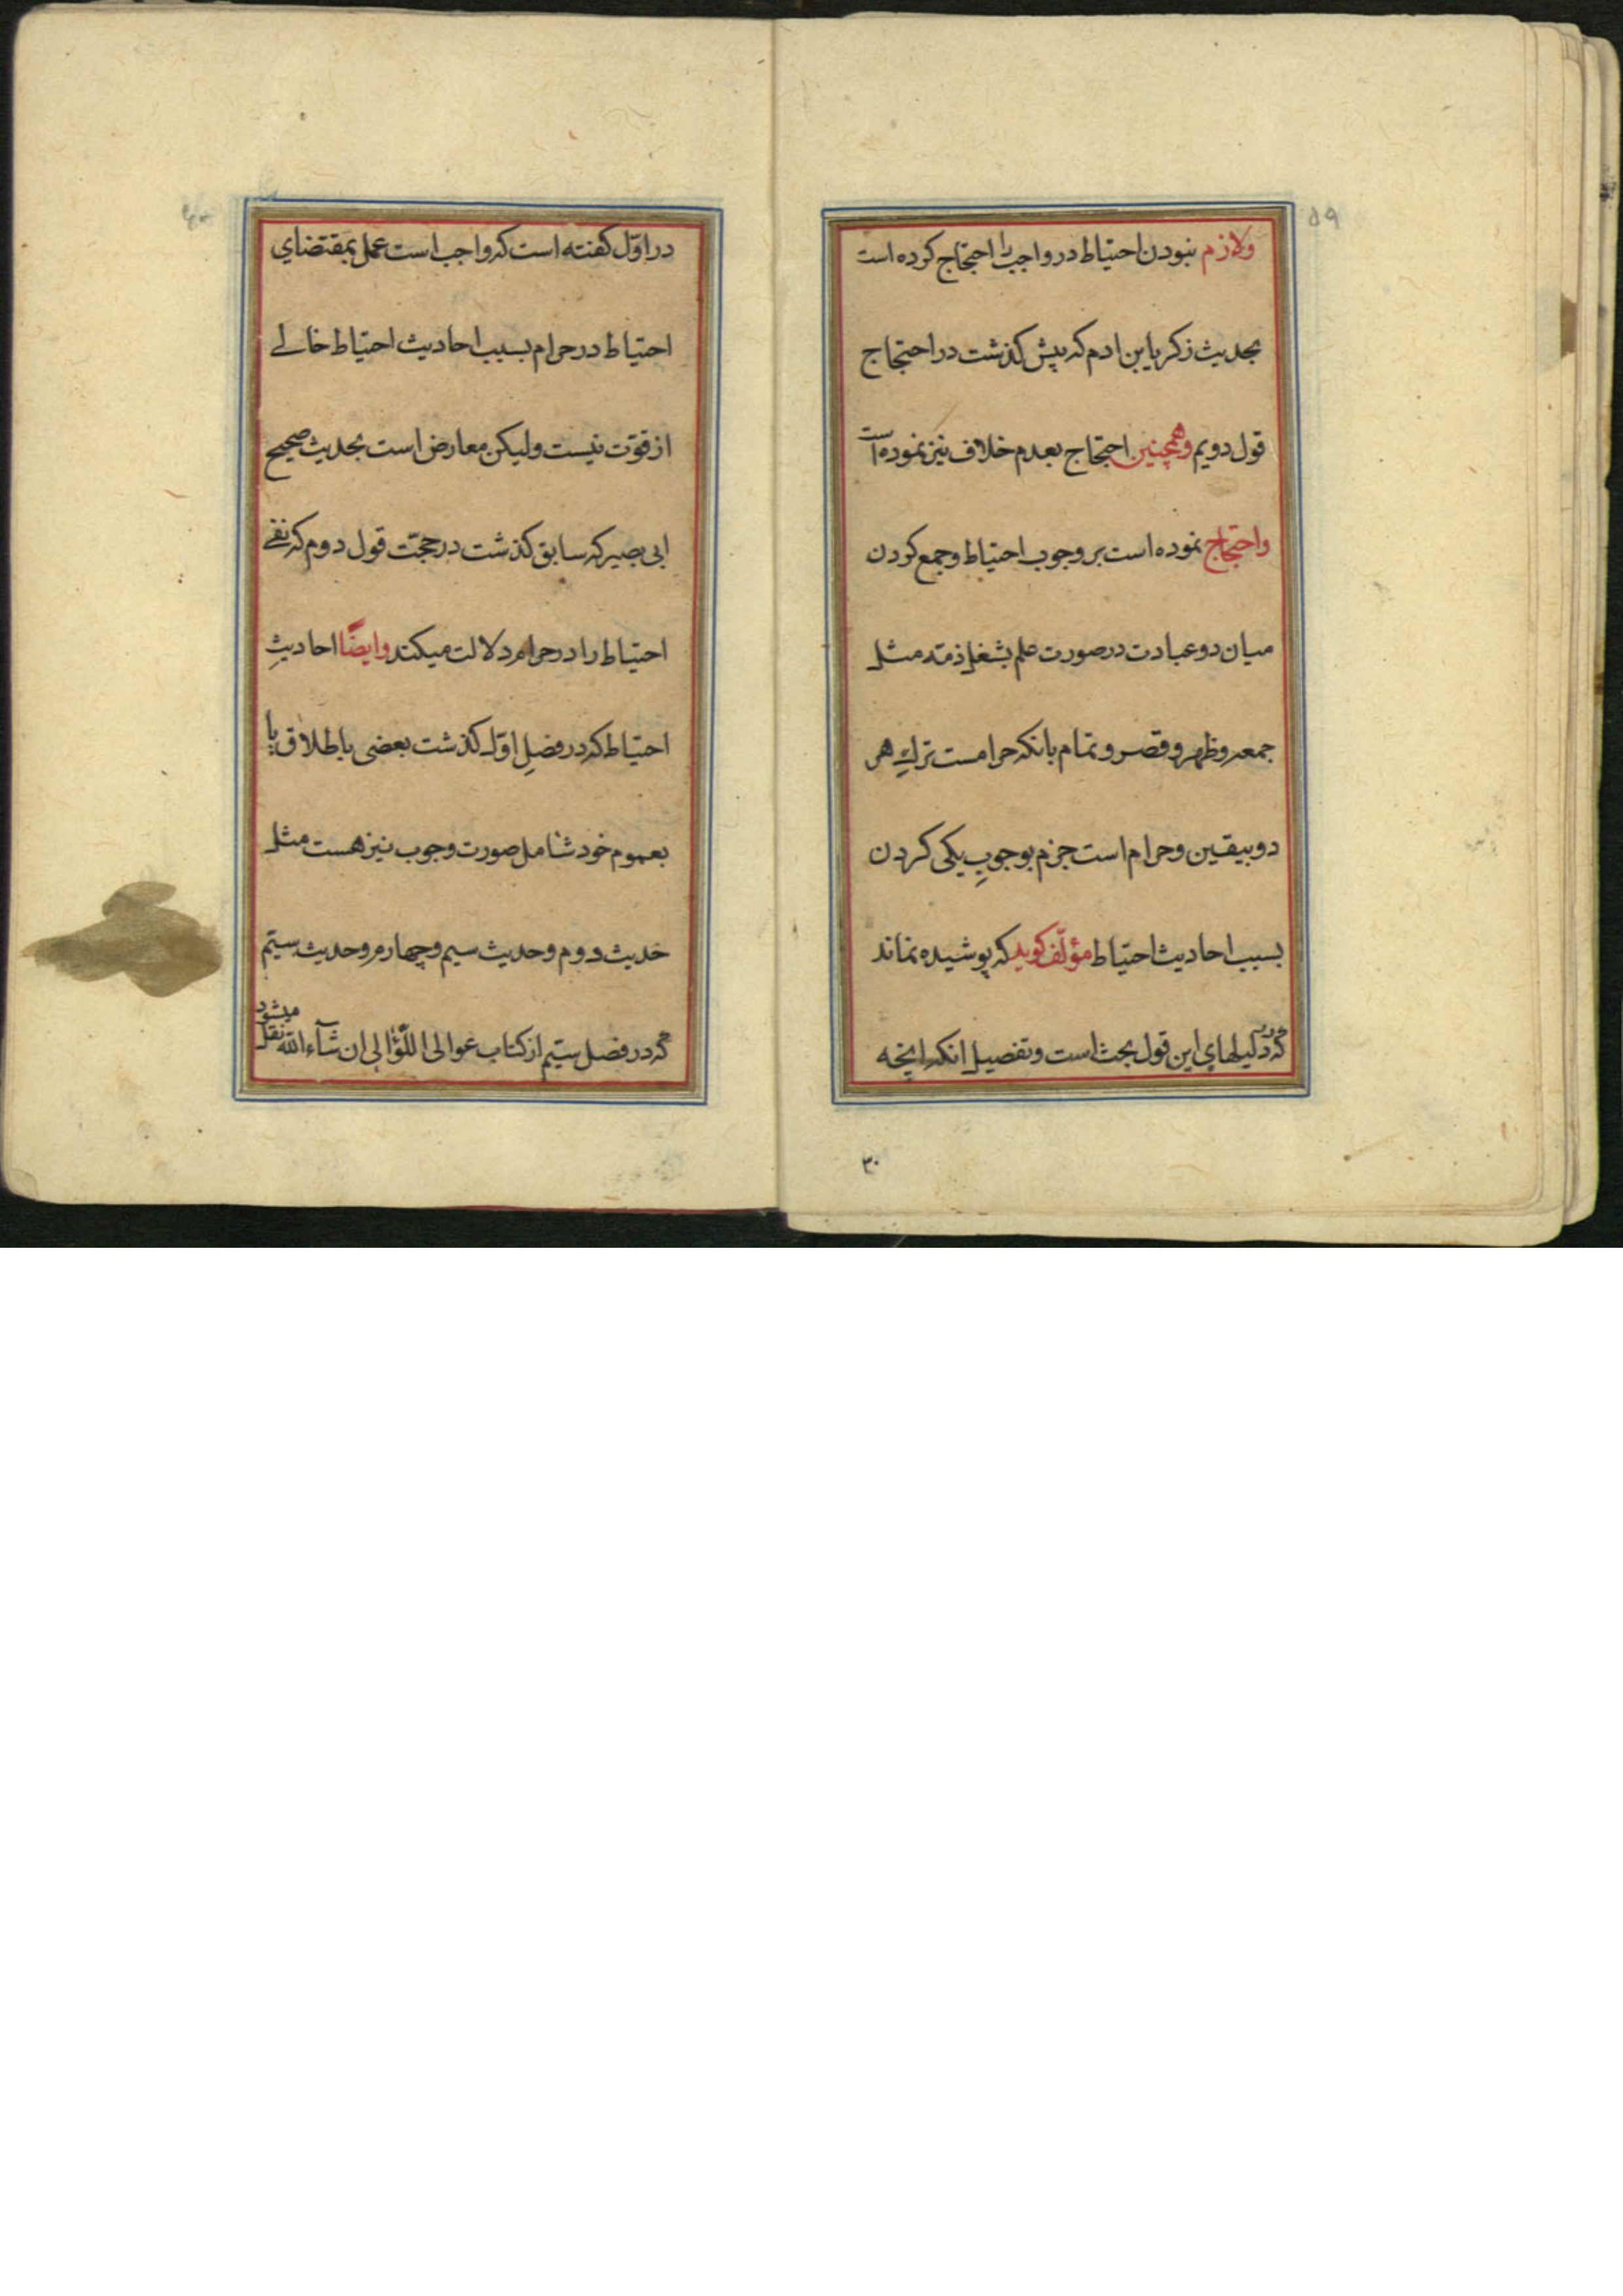 ٥٩
ولازم نبودن احتیاط در واجب را احتجاج کرده است
بحدیث زکریا بن ادم که پیش کذشت در احتجاج
قول دویم وهمچنین احتجاج بعدم خلاف نیز نموده است
واحتجاج نموده است بر وجوب احتیاط وجمع کردن
میان دو عبادت در صورت علم بشغل ذمته مثل
جمعه وظهر وقصر وتمام بانکه حرامست ترك هر
دو بیقین وحرام است جزم بوجوبِ یکی کردن
بسبب احادیث احتیاط مؤلّف کوید که پوشیده نماند
که در دلیلهای این قول بحث است وتفصیل انکه انچه
۳۰
در اوّل کفته است که واجب است عمل بمقتضای
احتیاط در حرام بسبب احادیث احتیاط خالے
از قوّت نیست ولیکن معارض است بحدیث صحیح
ابی بصیر که سابق کذشت در حجّت قول دوم که نفے
احتیاط را در حرام دلالت میکند وایضًا احادیثِ
احتیاط که در فصلِ اوّل کذشت بعضی باطلاق یا
بعموم خود شامل صورت وجوب نیز هست مثل
حدیث دوم وحدیث سیم وچهارم وحدیث بیستم
که در فصل بیستم از کتاب عوالی اللّؤالی ان شآء الله نقل میشود